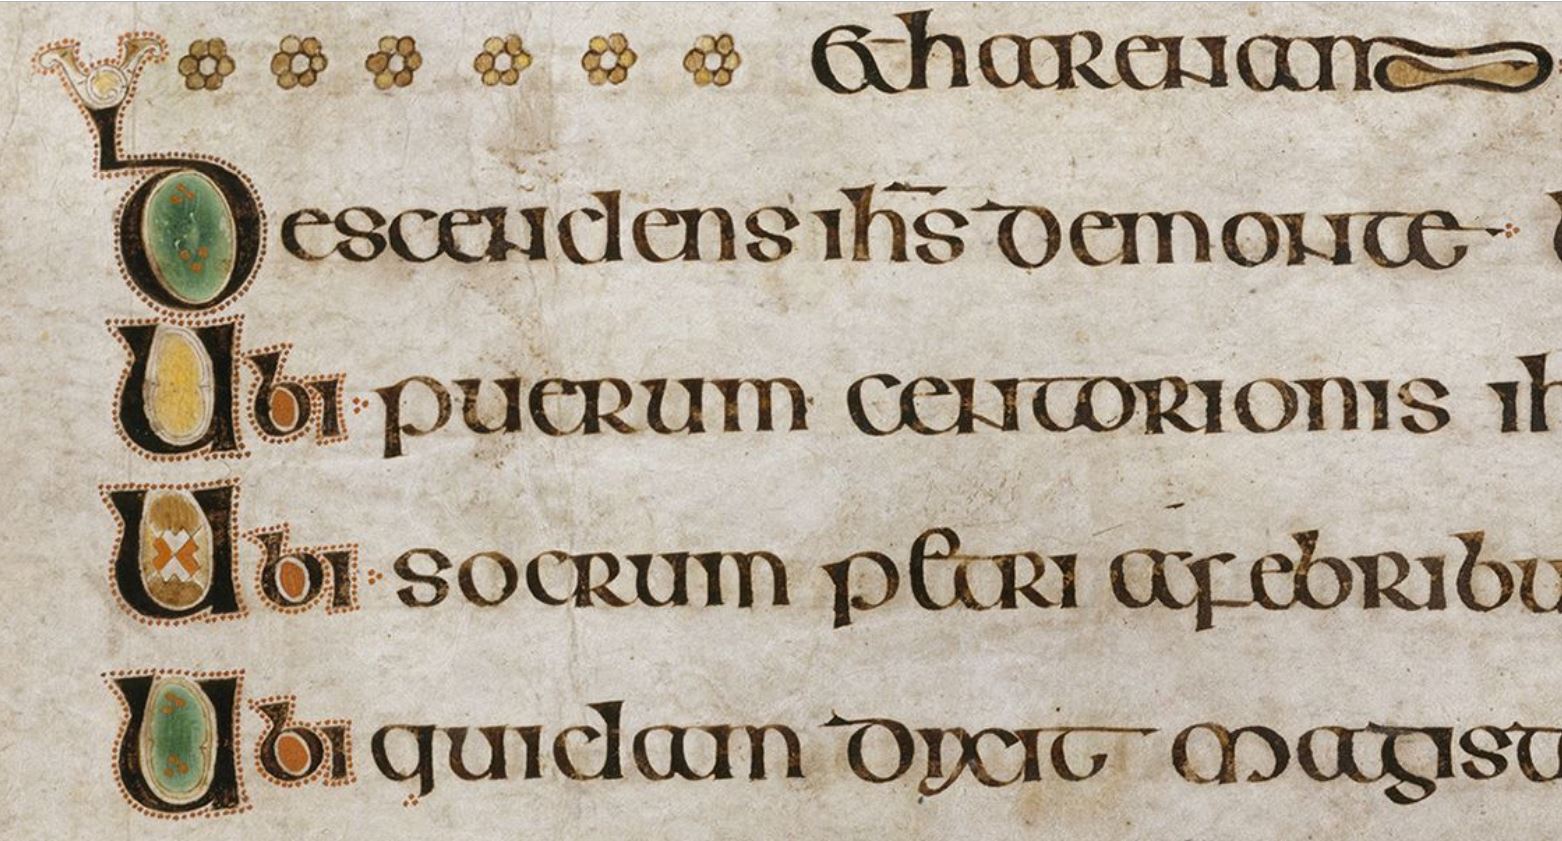 & harenam
Descendens ihs̅ demonte
Ubi puerum centorionis ih
Ubi socrum petri afebribu
Ubi quidam dixit magist